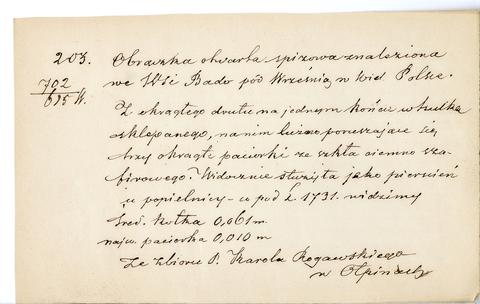 203. Obrączka otwarta spiżowa znaleziona
702 we Wsi Bardo pod Wrześnią w Wiel. Polsce.
695 W.
Z okrągłego drutu na jednym końcu w
sklepanego, na nim luźno poruszające się
trzy okrągłe paciorki ze szkła ciemno sza-
firowego. Widocznie służyła jako pierścień
w popielnicy - pod L. 1731. widzimy
Śred. kółka 0,061 m.
najw. paciorka 0,010 m
Ze zbioru P. Karola Rogawskiego
w Ołpinach